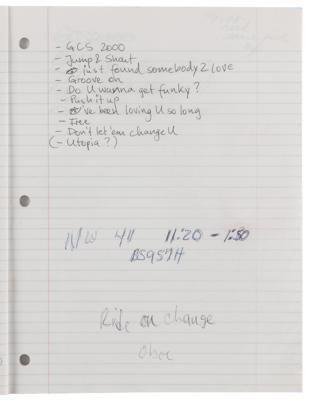 - GCS 2000
- Jump & Shout
- just found somebody 2 love
- Groove on
- Do U wanna get funky?
- Push it up
- I've been loving U so long
- Free
- Don't let 'em change U
(- Utopia?)
N/W 4/1 11:20 - 1:50
BS957H
Ride on change
Oboe